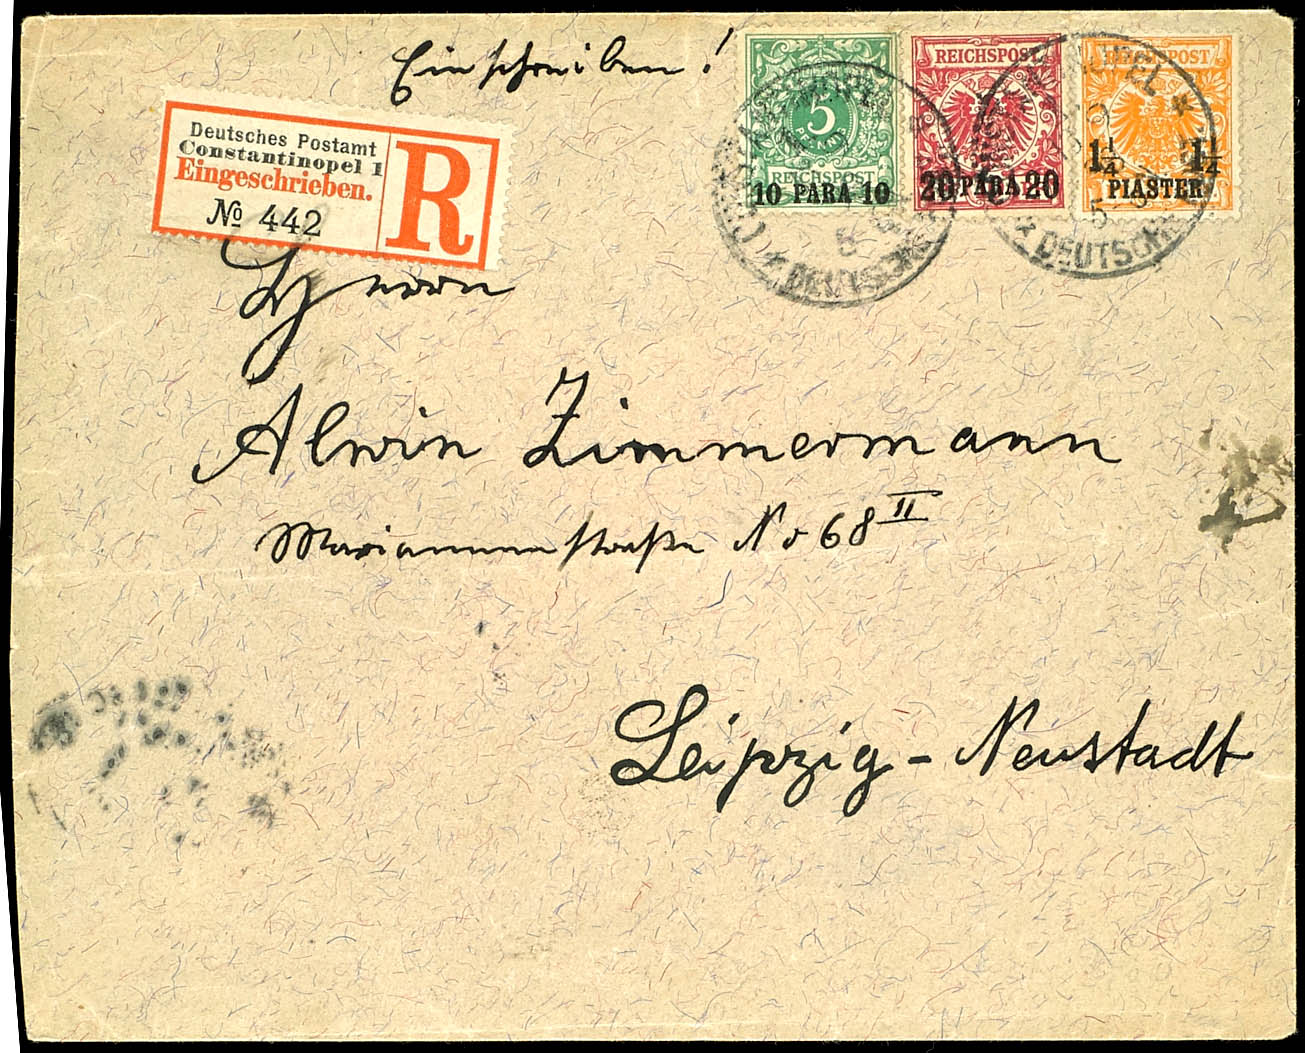 Einschreiben!
Deutsches Postamt
Constantinopel 1
Eingeschrieben.
№ 442
R
5
PFENNIG
REICHSPOST
10 PARA 10
REICHSPOST
20 PARA 20
REICHSPOST
1¼ 1¼
PIASTER
* DEUTSCHE
* DEUTSCHE
Herrn
Alwin Zimmermann
Mariannenstraße No 68 II
Leipzig-Neustadt